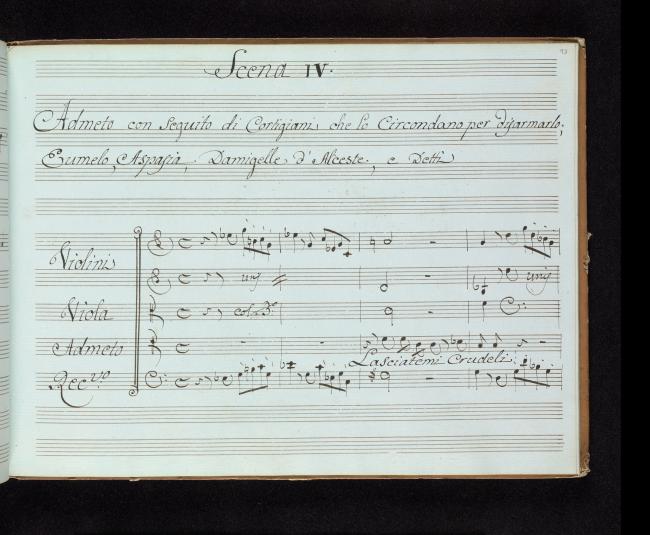 Scena IV.
Admeto con Seguito di Cortigiani che lo Circondano per disarmarlo;
Eumelo, Aspasia, Damigelle d'Alceste, e Detti
Violini
unis
unis
Viola
col B.
Admeto
Lasciatemi Crudeli
Rec.vo